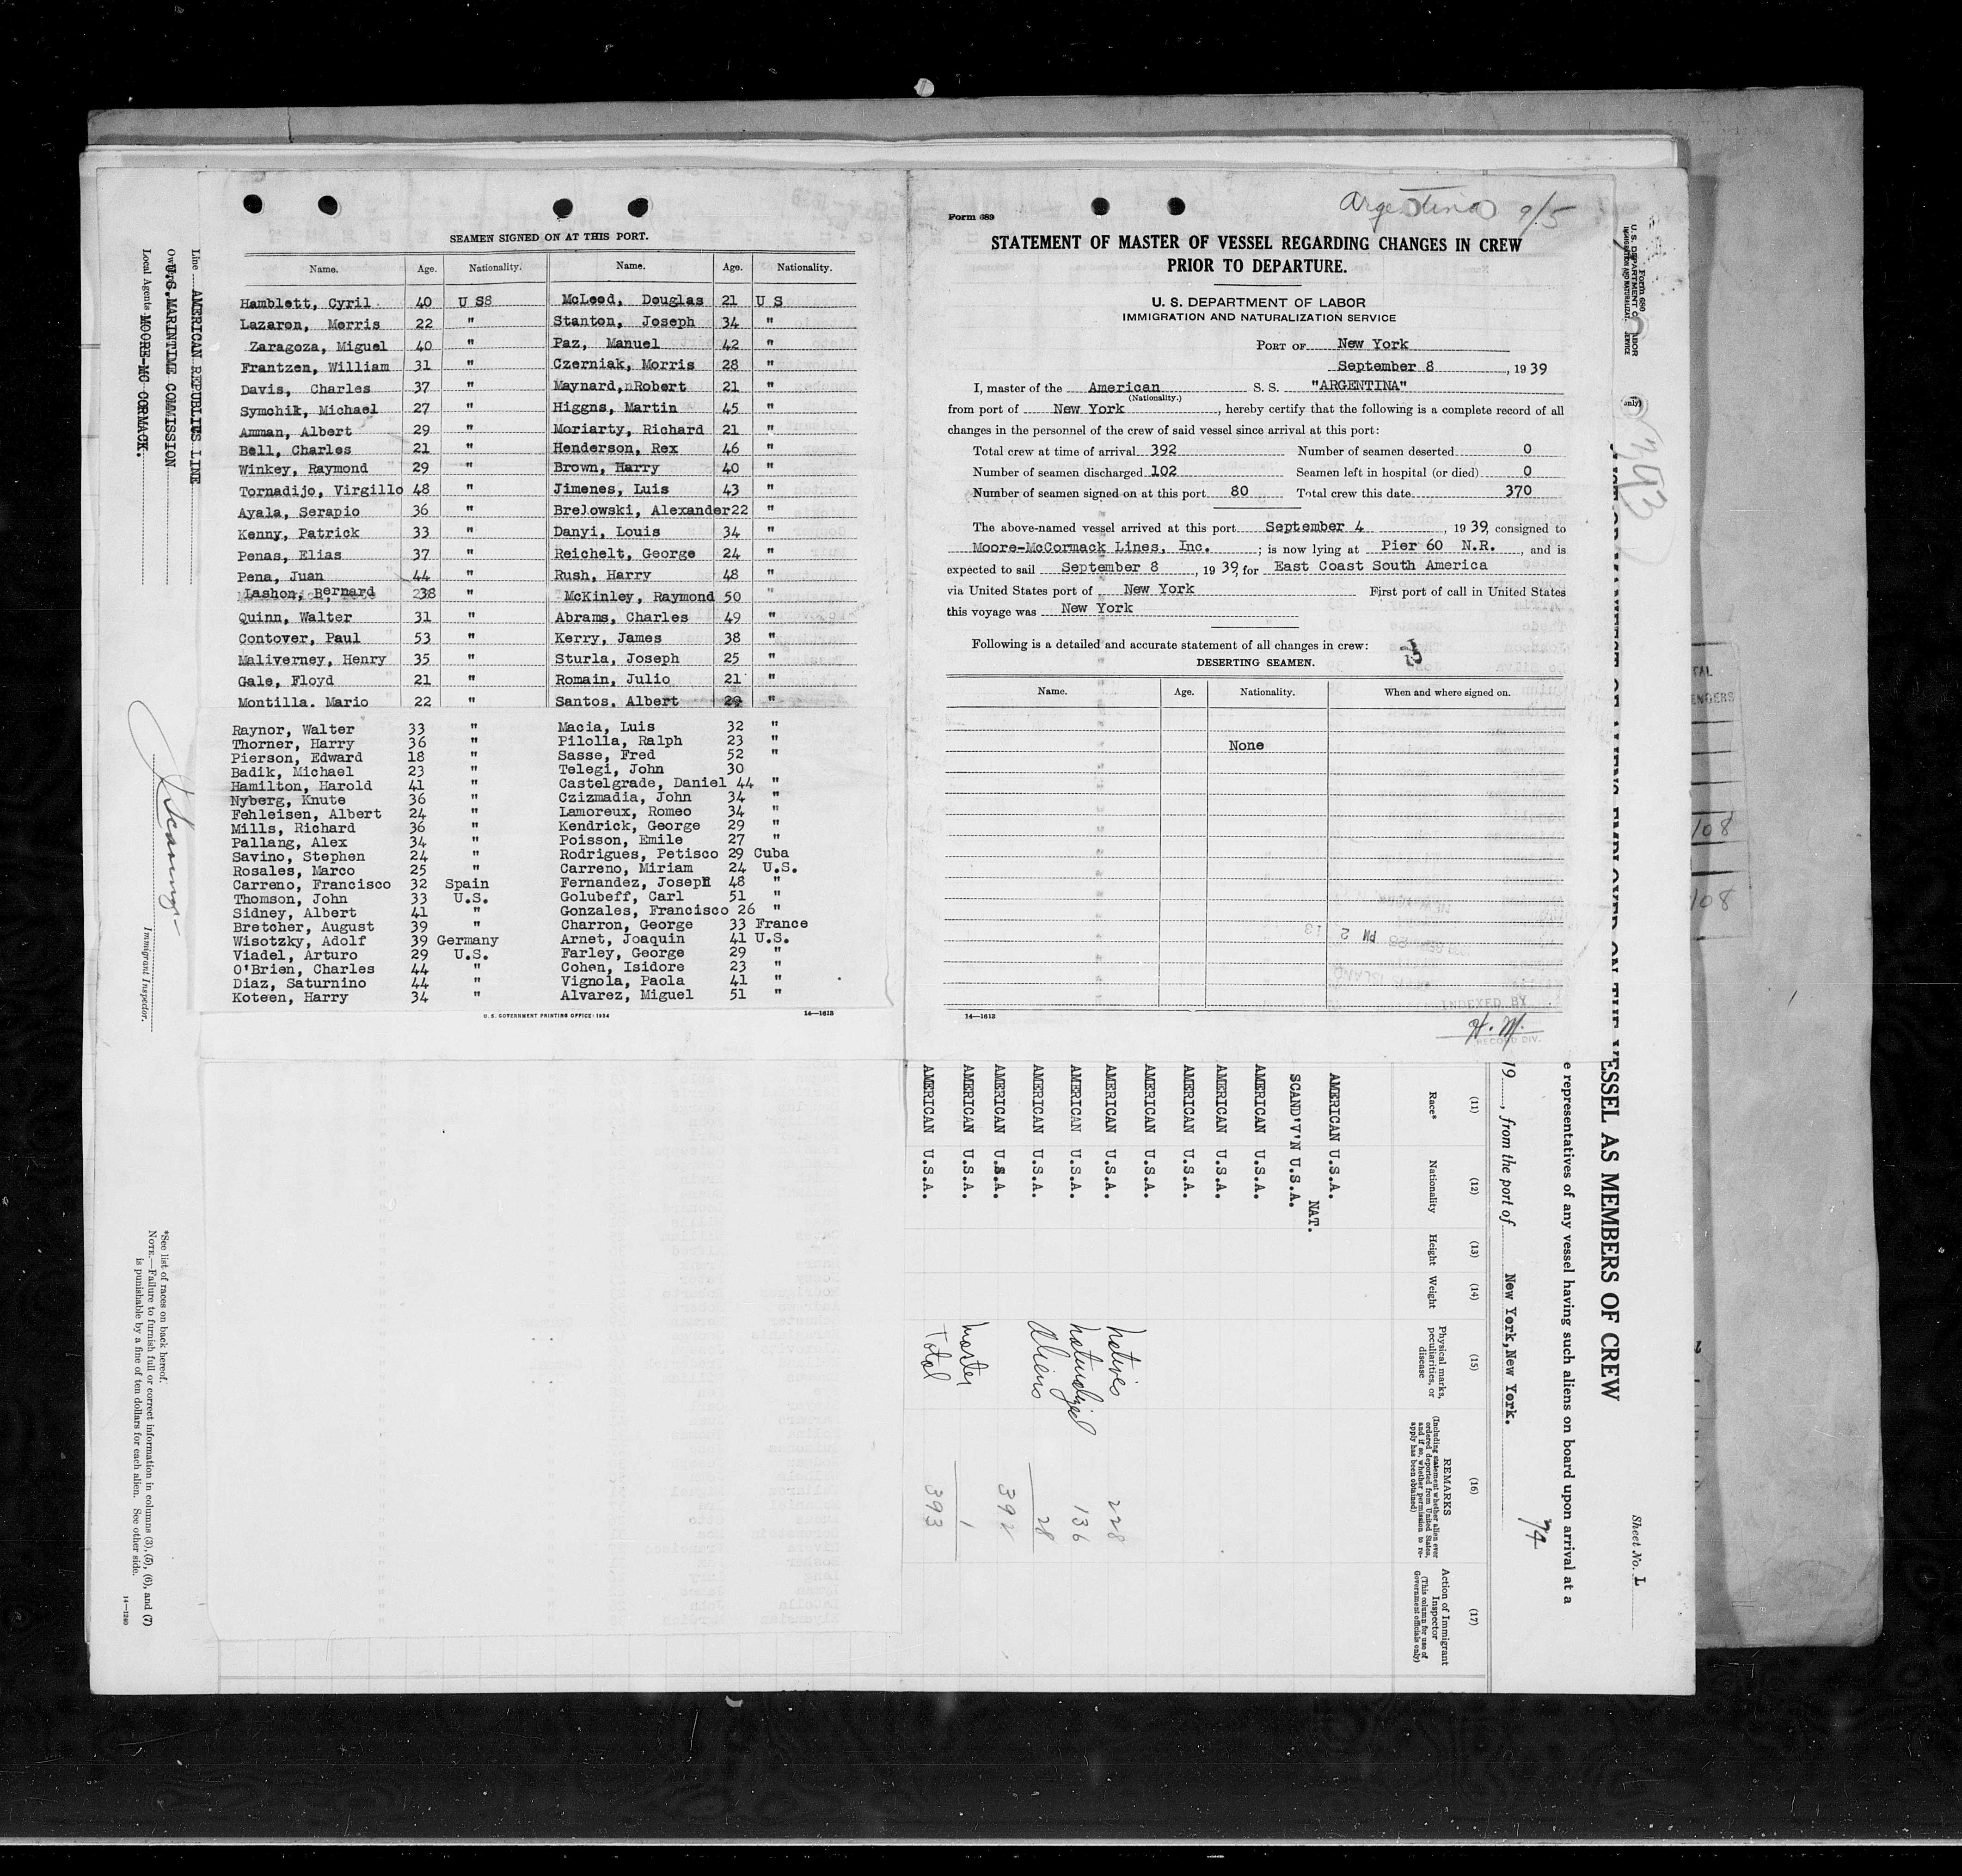 SEAMEN SIGNED ON AT THIS PORT.
Name. Age. Nationality. Name. Age. Nationality.
Hamblett, Cyril 40 U S McLeod, Douglas 21 U S
Lazaron, Morris 22 " Stanton, Joseph 34 "
Zaragoza, Miguel 40 " Paz, Manuel 42 "
Frantzen, William 31 " Czerniak, Morris 28 "
Davis, Charles 37 " Maynard, Robert 21 "
Symchik, Michael 27 " Higgns, Martin 45 "
Amman, Albert 29 " Moriarty, Richard 21 "
Bell, Charles 21 " Henderson, Rex 46 "
Winkey, Raymond 29 " Brown, Harry 40 "
Tornadijo, Virgillo 48 " Jimenes, Luis 43 "
Ayala, Serapio 36 " Brelowski, Alexander 22 "
Kenny, Patrick 33 " Danyi, Louis 34 "
Penas, Elias 37 " Reichelt, George 24 "
Pena, Juan 44 " Rush, Harry 48 "
Lashon, Bernard 38 " McKinley, Raymond 50 "
Quinn, Walter 31 " Abrams, Charles 49 "
Contover, Paul 53 " Kerry, James 38 "
Maliverney, Henry 35 " Sturla, Joseph 25 "
Gale, Floyd 21 " Romain, Julio 21 "
Montilla. Mario 22 " Santos. Albert "
Raynor, Walter 33 " Macia, Luis 32 "
Thorner, Harry 36 " Pilolla, Ralph 23 "
Pierson, Edward 18 " Sasse, Fred 52 "
Badik, Michael 23 " Telegi, John 30
Hamilton, Harold 41 " Castelgrade, Daniel 44 "
Nyberg, Knute 36 " Czizmadia, John 34 "
Fehleisen, Albert 24 " Lamoreux, Romeo 34 "
Mills, Richard 36 " Kendrick, George 29 "
Pallang, Alex 34 " Poisson, Emile 27 "
Savino, Stephen 24 " Rodrigues, Petisco 29 Cuba
Rosales, Marco 25 " Carreno, Miriam 24 U.S.
Carreno, Francisco 32 Spain Fernandez, Joseph 48 "
Thomson, John 33 U.S. Golubeff, Carl 51 "
Sidney, Albert 41 " Gonzales, Francisco 26 "
Bretcher, August 39 " Charron, George 33 France
Wisotzky, Adolf 39 Germany Arnet, Joaquin 41 U.S.
Viadel, Arturo 29 U.S. Farley, George 29 "
O'Brien, Charles 44 " Cohen, Isidore 23 "
Diaz, Saturnino 44 " Vignola, Paola 41 "
Koteen, Harry 34 " Alvarez, Miguel 51 "
U. S. GOVERNMENT PRINTING OFFICE: 1934 14—1613
Argentina 9/5
Form 689
STATEMENT OF MASTER OF VESSEL REGARDING CHANGES IN CREW
PRIOR TO DEPARTURE.
U. S. DEPARTMENT OF LABOR
IMMIGRATION AND NATURALIZATION SERVICE
PORT OF New York
September 8, 1939
I, master of the American S. S. "ARGENTINA"
(Nationality.)
from port of New York, hereby certify that the following is a complete record of all
changes in the personnel of the crew of said vessel since arrival at this port:
Total crew at time of arrival 392 Number of seamen deserted 0
Number of seamen discharged 102 Seamen left in hospital (or died) 0
Number of seamen signed on at this port 80 Total crew this date 370
The above-named vessel arrived at this port September 4, 1939, consigned to
Moore-McCormack Lines, Inc.; is now lying at Pier 60 N.R., and is
expected to sail September 8, 1939, for East Coast South America
via United States port of New York First port of call in United States
this voyage was New York
Following is a detailed and accurate statement of all changes in crew:
DESERTING SEAMEN.
Name. Age. Nationality. When and where signed on.
None
INDEXED BY
H. M.
RECORD DIV.
14—1613
Line AMERICAN REPUBLIC LINE
Owners U.S. MARINTIME COMMISSION
Local Agents MOORE-MC CORMACK.
Immigrant Inspector.
*See list of races on back hereof.
NOTE.—Failure to furnish full or correct information in columns (3), (5), (6), and (7)
is punishable by a fine of ten dollars for each alien. See other side.
14—1240
Form 680
U. S. DEPARTMENT OF LABOR
(393)
VESSEL AS MEMBERS OF CREW
Sheet No. 1
e representatives of any vessel having such aliens on board upon arrival at a
19, from the port of New York, New York.
74
(11) (12) (13) (14) (15) (16) (17)
Race* Nationality Height Weight Physical marks, peculiarities, or disease
REMARKS
(Including statement whether alien ever ordered deported from United States, and if so, whether permission to reapply has been obtained)
Action of Immigrant Inspector
(This column for use of Government officials only)
AMERICAN U.S.A.
NAT.
SCAND'V'N U.S.A.
AMERICAN U.S.A.
AMERICAN U.S.A.
AMERICAN U.S.A.
AMERICAN U.S.A.
AMERICAN U.S.A. natives 228
AMERICAN U.S.A. naturalized 136
AMERICAN U.S.A. Aliens 28
AMERICAN U.S.A. 392
AMERICAN U.S.A. master 1
AMERICAN U.S.A. Total 393
108
108